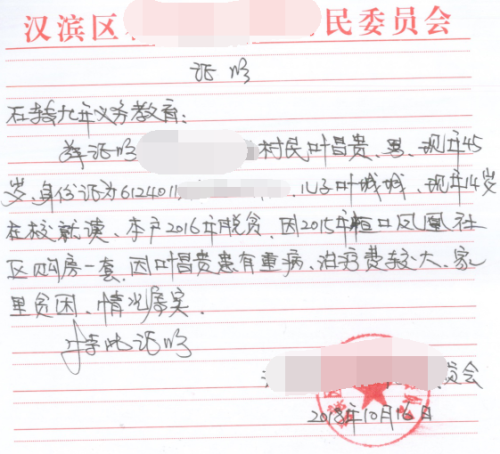 汉滨区 民委员会
证明
九年义务教育：
兹证明 村民叶昌贵、男、现年45
岁，身份证为612401 儿子叶城城、现年14岁
在校就读、本户2016年脱贫、因2015年恒口凤凰社
区购房一套、因叶昌贵患有重病、治疗费较大、家
里贫困、情况属实.
特此证明
员会
2018年10月16日